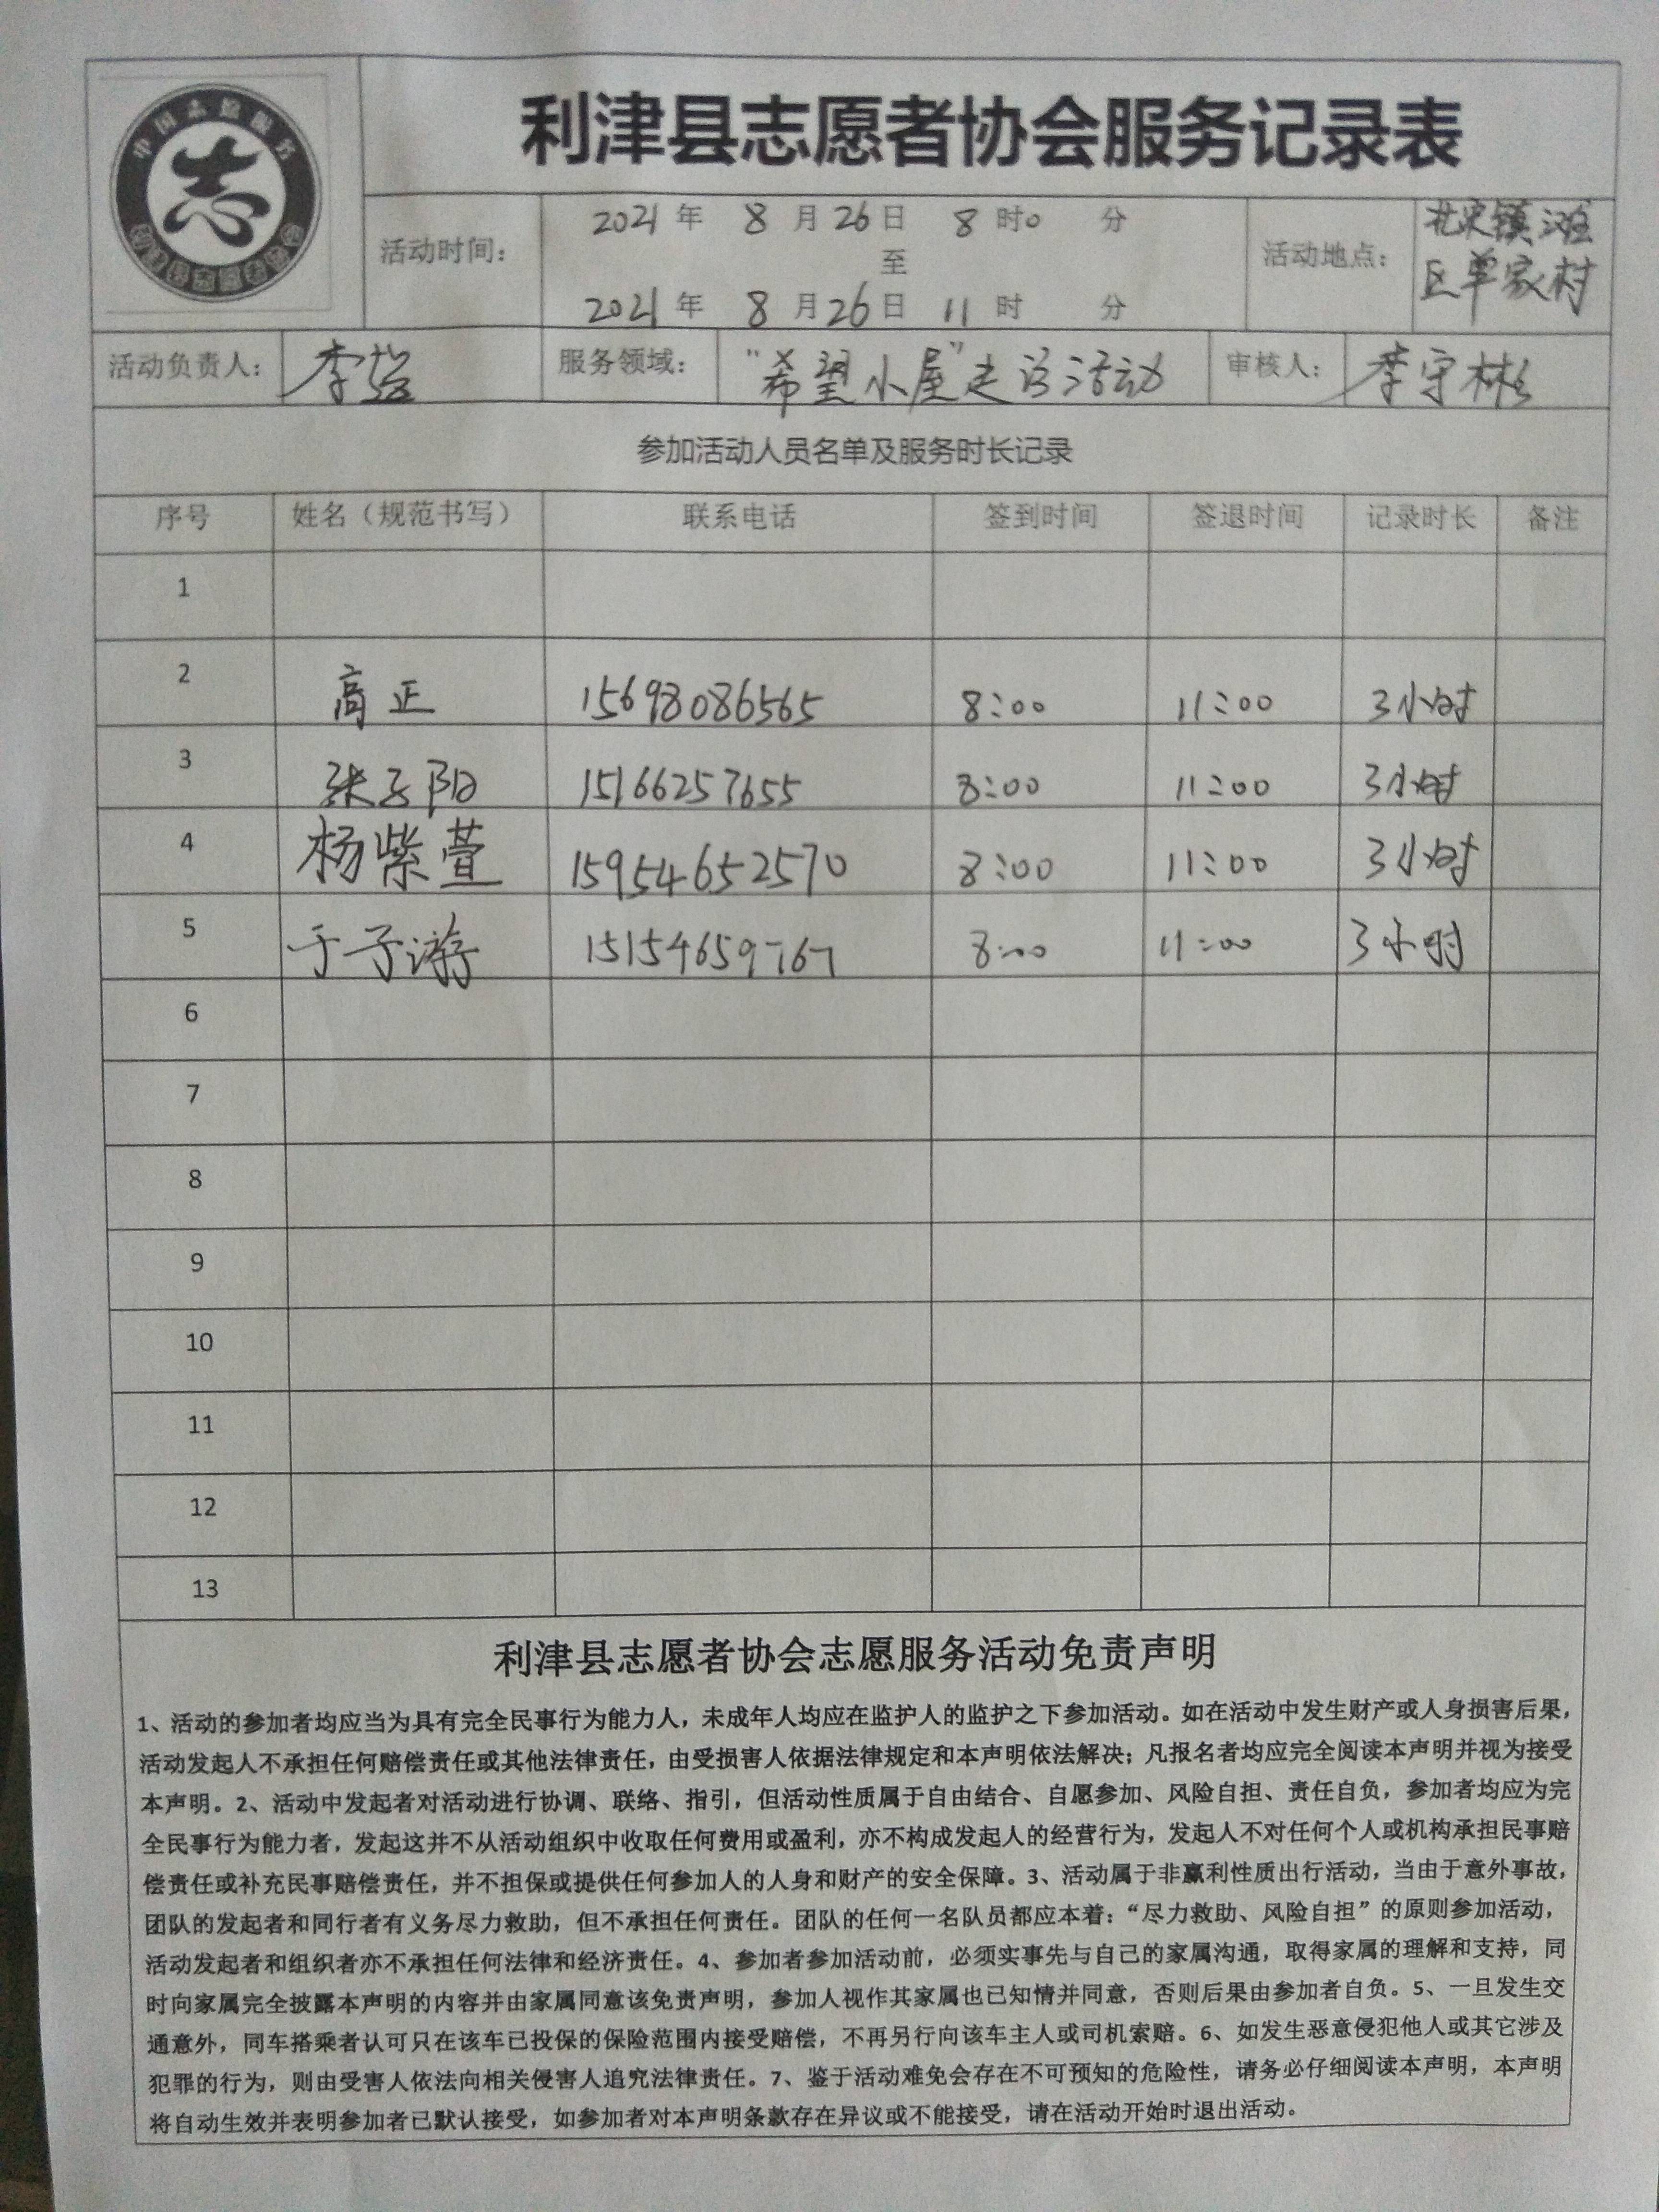 中国志愿服务
志
利津县志愿者协会服务记录表
活动时间：
2021 年 8 月 26 日 8 时 0 分
至
2021 年 8 月 26 日 11 时 分
活动地点：
北宋镇滩
区单家村
活动负责人： 李
服务领域： “希望小屋”走访活动
审核人： 李守彬
参加活动人员名单及服务时长记录
序号 姓名（规范书写） 联系电话 签到时间 签退时间 记录时长 备注
1
2 高正 15698086565 8:00 11:00 3小时
3 张子阳 15166257655 8:00 11:00 3小时
4 杨紫萱 15954652570 8:00 11:00 3小时
5 于子游 15154659767 8:00 11:00 3小时
6
7
8
9
10
11
12
13
利津县志愿者协会志愿服务活动免责声明
1、活动的参加者均应当为具有完全民事行为能力人，未成年人均应在监护人的监护之下参加活动。如在活动中发生财产或人身损害后果，
活动发起人不承担任何赔偿责任或其他法律责任，由受损害人依据法律规定和本声明依法解决；凡报名者均应完全阅读本声明并视为接受
本声明。2、活动中发起者对活动进行协调、联络、指引，但活动性质属于自由结合、自愿参加、风险自担、责任自负，参加者均应为完
全民事行为能力者，发起这并不从活动组织中收取任何费用或盈利，亦不构成发起人的经营行为，发起人不对任何个人或机构承担民事赔
偿责任或补充民事赔偿责任，并不担保或提供任何参加人的人身和财产的安全保障。3、活动属于非赢利性质出行活动，当由于意外事故，
团队的发起者和同行者有义务尽力救助，但不承担任何责任。团队的任何一名队员都应本着：“尽力救助、风险自担”的原则参加活动，
活动发起者和组织者亦不承担任何法律和经济责任。4、参加者参加活动前，必须实事先与自己的家属沟通，取得家属的理解和支持，同
时向家属完全披露本声明的内容并由家属同意该免责声明，参加人视作其家属也已知情并同意，否则后果由参加者自负。5、一旦发生交
通意外，同车搭乘者认可只在该车已投保的保险范围内接受赔偿，不再另行向该车主人或司机索赔。6、如发生恶意侵犯他人或其它涉及
犯罪的行为，则由受害人依法向相关侵害人追究法律责任。7、鉴于活动难免会存在不可预知的危险性，请务必仔细阅读本声明，本声明
将自动生效并表明参加者已默认接受，如参加者对本声明条款存在异议或不能接受，请在活动开始时退出活动。